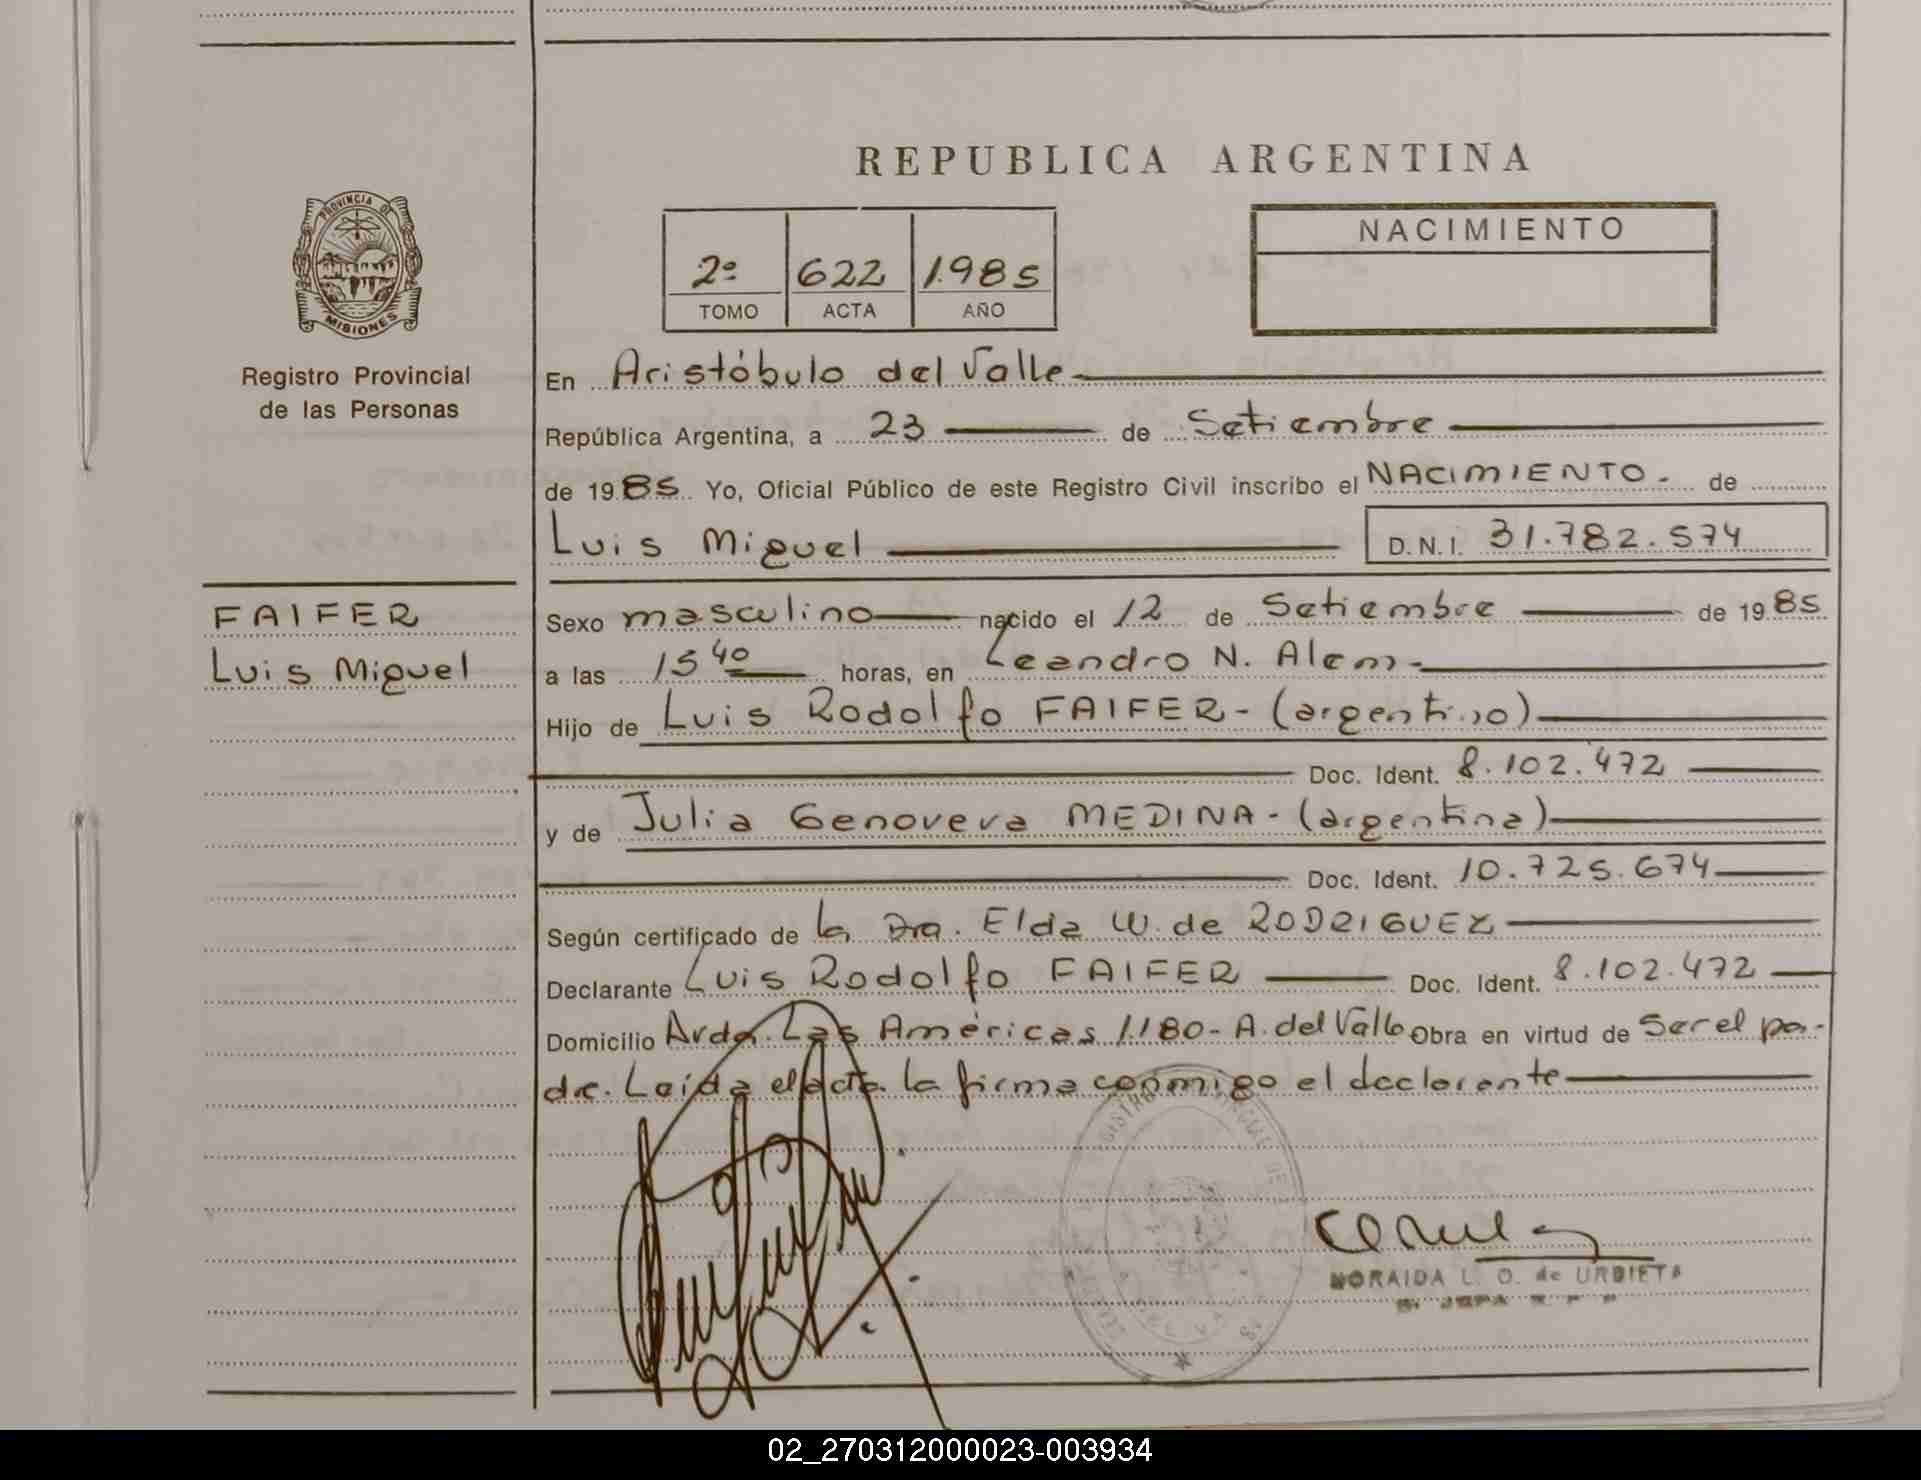 REPUBLICA ARGENTINA
PROVINCIA DE
MISIONES
Registro Provincial
de las Personas
2º 622 1.985
TOMO ACTA AÑO
NACIMIENTO
En Aristóbulo del Valle
República Argentina, a 23 de Setiembre
de 1985 Yo, Oficial Público de este Registro Civil inscribo el NACIMIENTO. de
Luis Miguel D.N.I. 31.782.574
FAIFER
Luis Miguel
Sexo masculino nacido el 12 de Setiembre de 1985
a las 15 40 horas, en Leandro N. Alem.
Hijo de Luis Rodolfo FAIFER - (argentino)
Doc. Ident. 8.102.472
y de Julia Genoveva MEDINA - (argentina)
Doc. Ident. 10.725.674
Según certificado de la Dra. Elda W. de RODRIGUEZ
Declarante Luis Rodolfo FAIFER Doc. Ident. 8.102.472
Domicilio Avda. Las Américas 1.180 - A. del Valle Obra en virtud de ser el pa-
dre. Leída el acta la firma conmigo el declarante
NORAIDA L. O. de URBIETA
02_270312000023-003934